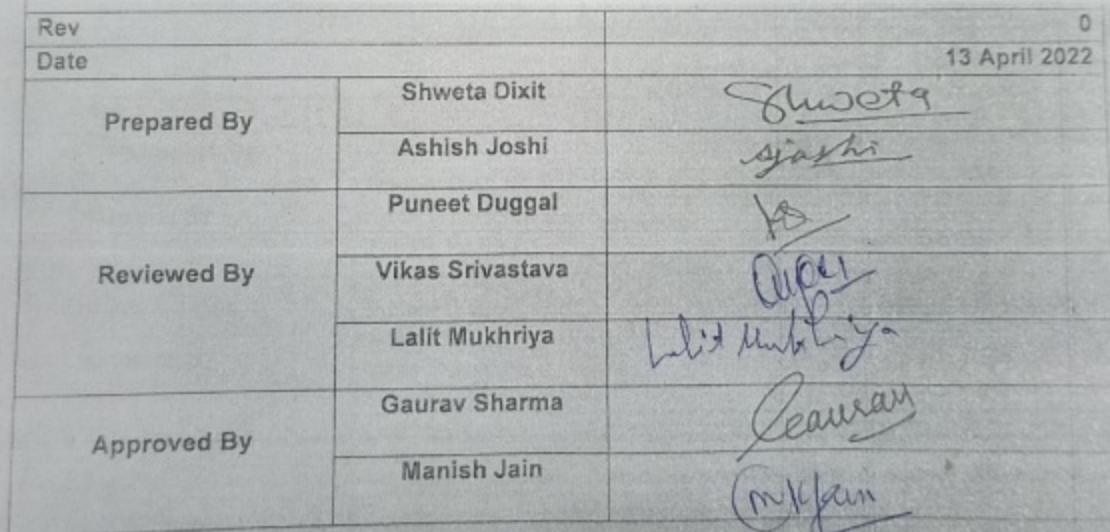 Rev 0
Date 13 April 2022
Prepared By
Shweta Dixit Shweta
Ashish Joshi ajoshi
Reviewed By
Puneet Duggal
Vikas Srivastava
Lalit Mukhriya Lalit Mukhriya
Approved By
Gaurav Sharma Gaurav
Manish Jain mkjain